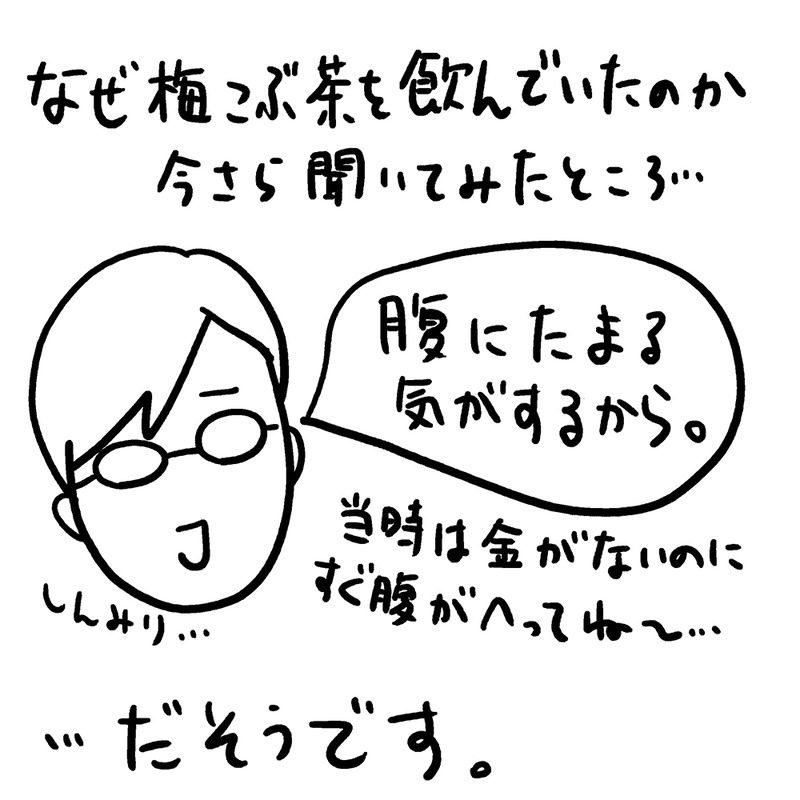 なぜ梅こぶ茶を飲んでいたのか
今さら聞いてみたところ…
腹にたまる
気がするから。
当時は金がないのに
すぐ腹がへってね〜…
しんみり…
…だそうです。